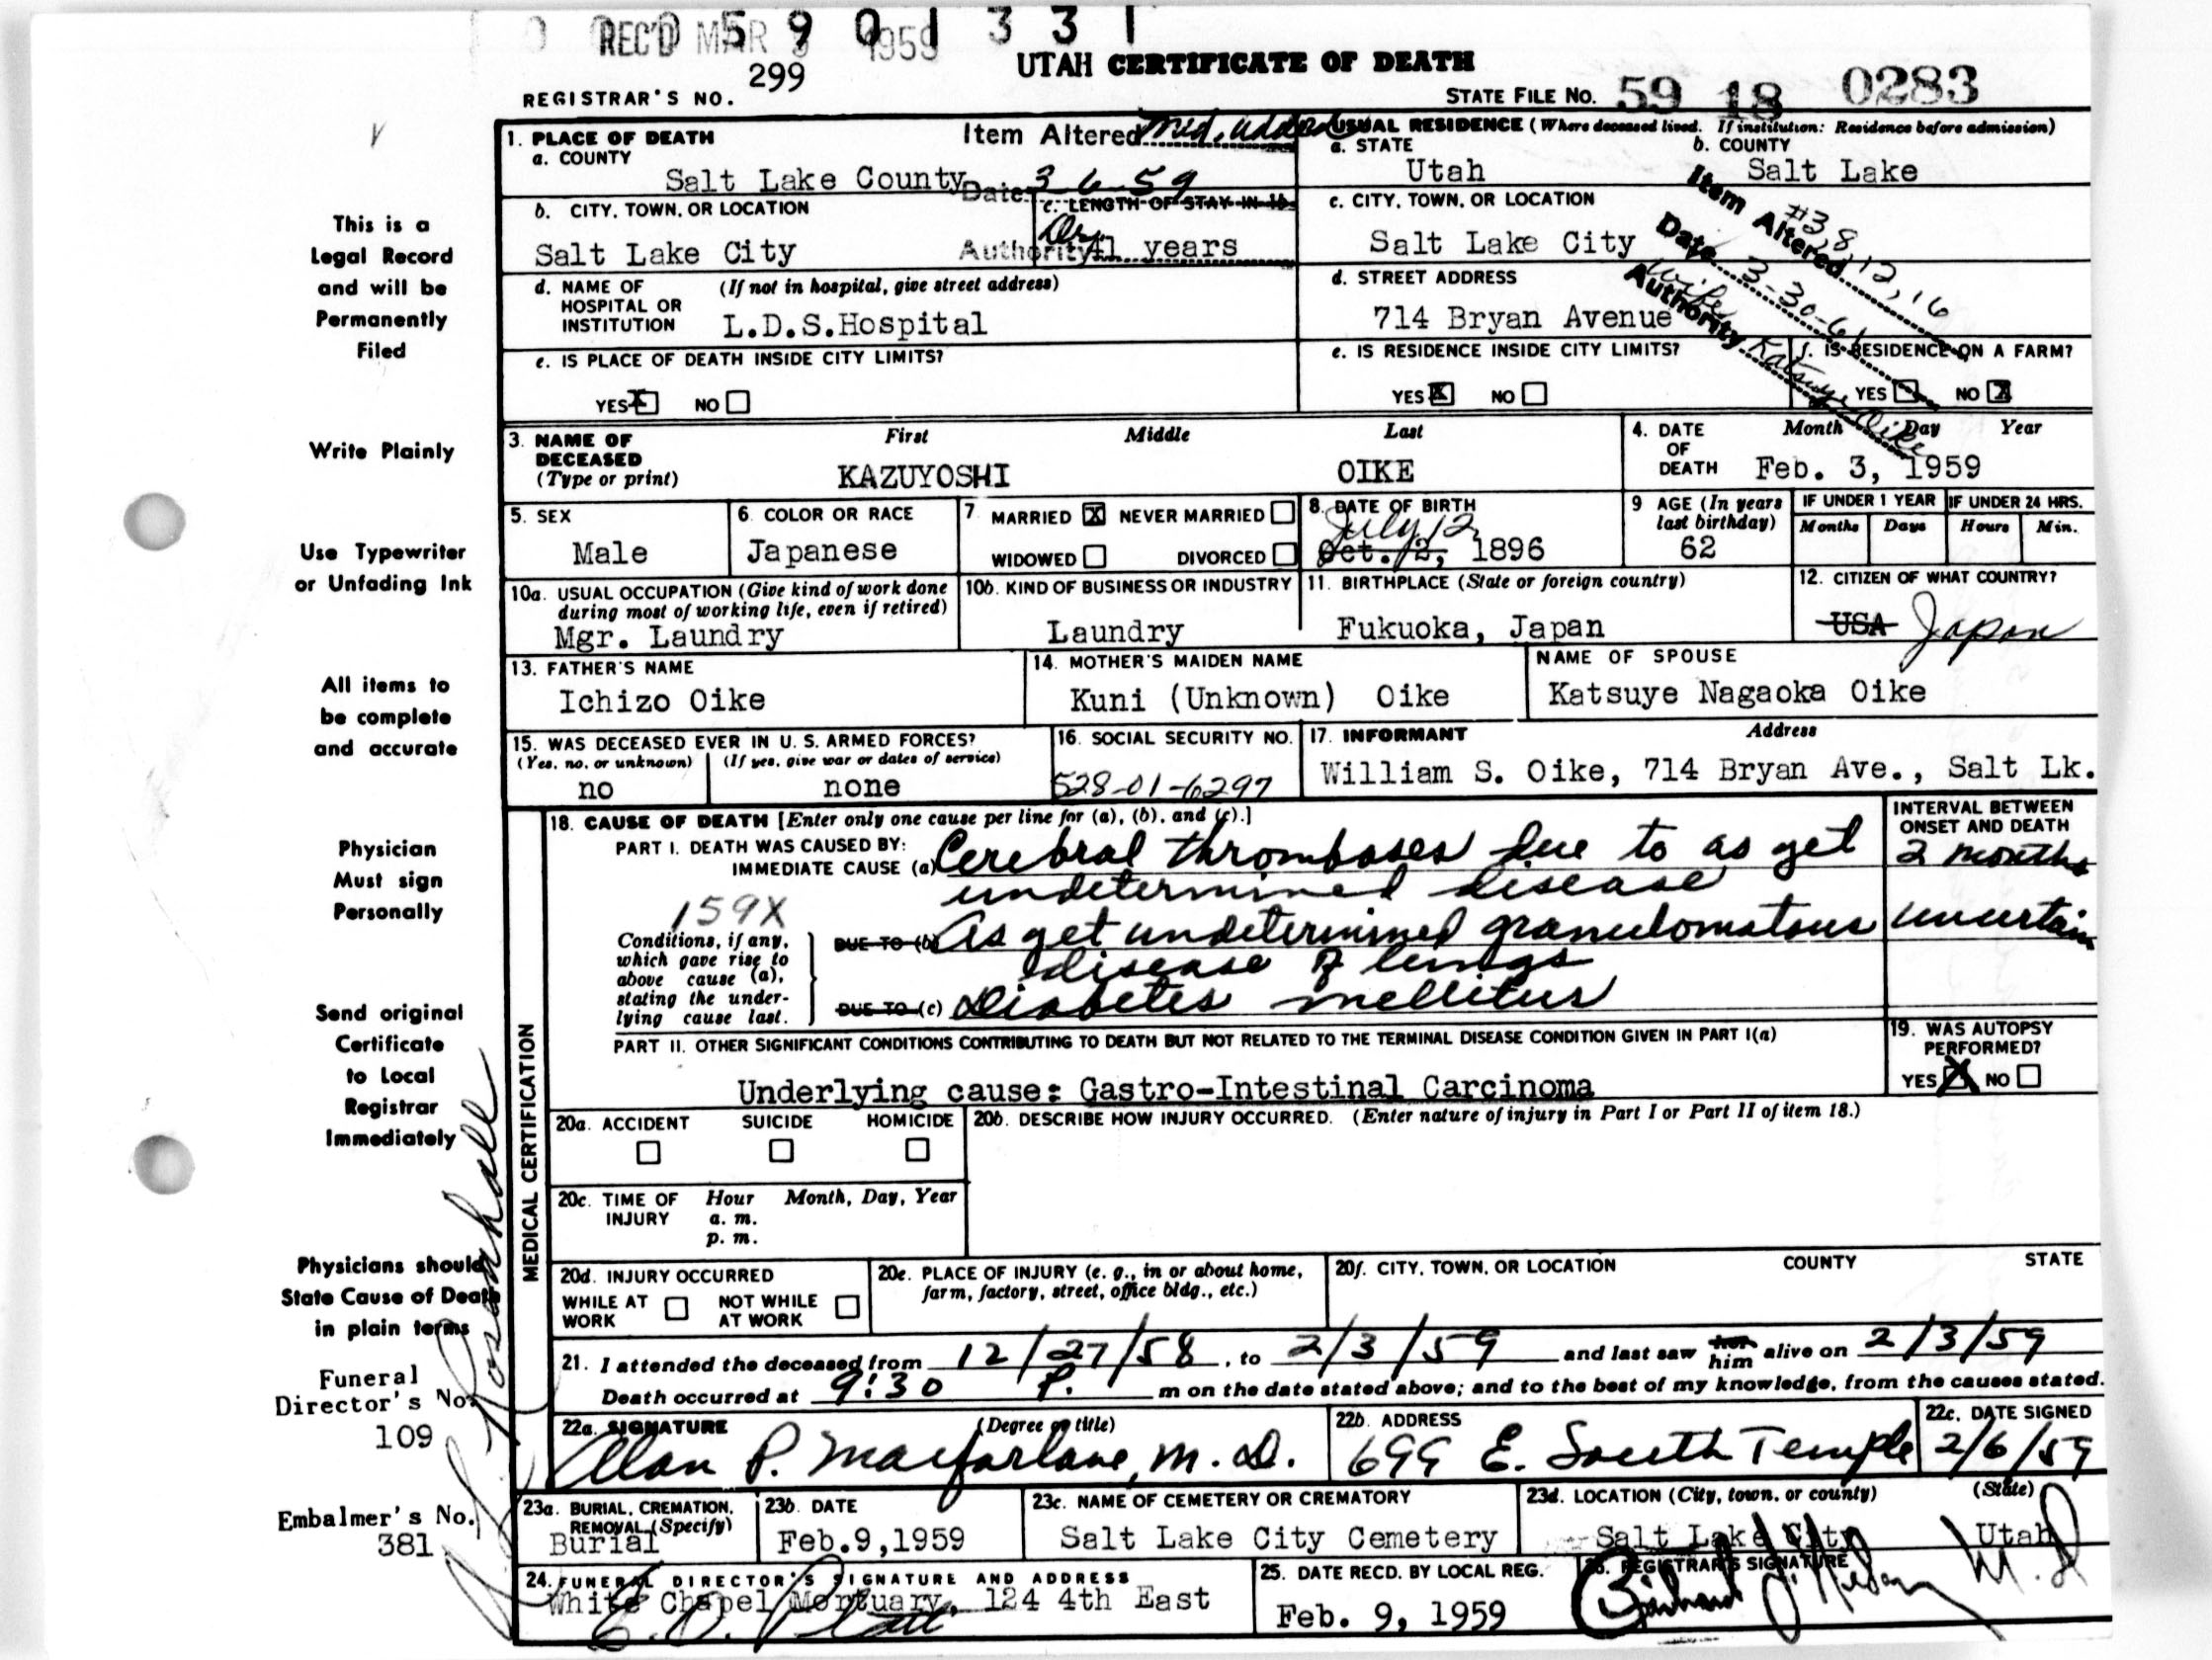 REC'D MAR 9 1959
5 9 0 1 3 3 1
UTAH CERTIFICATE OF DEATH
REGISTRAR'S NO. 299
STATE FILE NO. 59 18 0283
1. PLACE OF DEATH
a. COUNTY
Salt Lake County
Item Altered Med. added
Date 3-6-59
Authority Dr.
USUAL RESIDENCE (Where deceased lived. If institution: Residence before admission)
a. STATE
Utah
b. COUNTY
Salt Lake
Item Altered #3, 8, 12, 16
Date 3-30-61
Authority Wife Katsuye Oike
b. CITY, TOWN, OR LOCATION
Salt Lake City
c. LENGTH OF STAY IN 1b
41 years
c. CITY, TOWN, OR LOCATION
Salt Lake City
d. NAME OF HOSPITAL OR INSTITUTION (If not in hospital, give street address)
L.D.S.Hospital
d. STREET ADDRESS
714 Bryan Avenue
e. IS PLACE OF DEATH INSIDE CITY LIMITS?
YES X NO
e. IS RESIDENCE INSIDE CITY LIMITS?
YES X NO
f. IS RESIDENCE ON A FARM?
YES NO X
3. NAME OF DECEASED (Type or print)
First Middle Last
KAZUYOSHI OIKE
4. DATE OF DEATH
Month Day Year
Feb. 3, 1959
5. SEX
Male
6. COLOR OR RACE
Japanese
7 MARRIED X NEVER MARRIED
WIDOWED DIVORCED
8. DATE OF BIRTH
July 12
Oct. 2, 1896
9 AGE (In years last birthday)
62
IF UNDER 1 YEAR
Months Days
IF UNDER 24 HRS.
Hours Min.
10a. USUAL OCCUPATION (Give kind of work done during most of working life, even if retired)
Mgr. Laundry
10b. KIND OF BUSINESS OR INDUSTRY
Laundry
11. BIRTHPLACE (State or foreign country)
Fukuoka, Japan
12. CITIZEN OF WHAT COUNTRY?
USA Japan
13. FATHER'S NAME
Ichizo Oike
14. MOTHER'S MAIDEN NAME
Kuni (Unknown) Oike
NAME OF SPOUSE
Katsuye Nagaoka Oike
15. WAS DECEASED EVER IN U. S. ARMED FORCES?
(Yes, no, or unknown) (If yes, give war or dates of service)
no none
16. SOCIAL SECURITY NO.
528-01-6297
17. INFORMANT Address
William S. Oike, 714 Bryan Ave., Salt Lk.
MEDICAL CERTIFICATION
18. CAUSE OF DEATH [Enter only one cause per line for (a), (b), and (c).]
PART I. DEATH WAS CAUSED BY:
IMMEDIATE CAUSE (a) Cerebral thromboses due to as yet
undetermined disease
159X
Conditions, if any, which gave rise to above cause (a), stating the underlying cause last.
DUE TO (b) As yet undetermined granulomatous
disease of lungs
DUE TO (c) Diabetes mellitus
INTERVAL BETWEEN ONSET AND DEATH
2 months
uncertain
PART II. OTHER SIGNIFICANT CONDITIONS CONTRIBUTING TO DEATH BUT NOT RELATED TO THE TERMINAL DISEASE CONDITION GIVEN IN PART I(a)
Underlying cause: Gastro-Intestinal Carcinoma
19. WAS AUTOPSY PERFORMED?
YES X NO
20a. ACCIDENT SUICIDE HOMICIDE
20b. DESCRIBE HOW INJURY OCCURRED. (Enter nature of injury in Part I or Part II of item 18.)
20c. TIME OF INJURY
Hour Month, Day, Year
a. m.
p. m.
20d. INJURY OCCURRED
WHILE AT WORK NOT WHILE AT WORK
20e. PLACE OF INJURY (e. g., in or about home, farm, factory, street, office bldg., etc.)
20f. CITY, TOWN, OR LOCATION COUNTY STATE
21. I attended the deceased from 12/27/58, to 2/3/59 and last saw her him alive on 2/3/59
Death occurred at 9:30 P. m on the date stated above; and to the best of my knowledge, from the causes stated.
22a. SIGNATURE (Degree or title)
Alan P. Macfarlane, M.D.
22b. ADDRESS
699 E. South Temple
22c. DATE SIGNED
2/6/59
23a. BURIAL, CREMATION, REMOVAL (Specify)
Burial
23b. DATE
Feb.9,1959
23c. NAME OF CEMETERY OR CREMATORY
Salt Lake City Cemetery
23d. LOCATION (City, town, or county) (State)
Salt Lake City Utah
24. FUNERAL DIRECTOR'S SIGNATURE AND ADDRESS
White Chapel Mortuary, 124 4th East
25. DATE RECD. BY LOCAL REG.
Feb. 9, 1959
26. REGISTRAR'S SIGNATURE
M.D
This is a
Legal Record
and will be
Permanently
Filed
Write Plainly
Use Typewriter
or Unfading Ink
All items to
be complete
and accurate
Physician
Must sign
Personally
Send original
Certificate
to Local
Registrar
Immediately
Physicians should
State Cause of Death
in plain terms
Funeral
Director's No.
109
Embalmer's No.
381